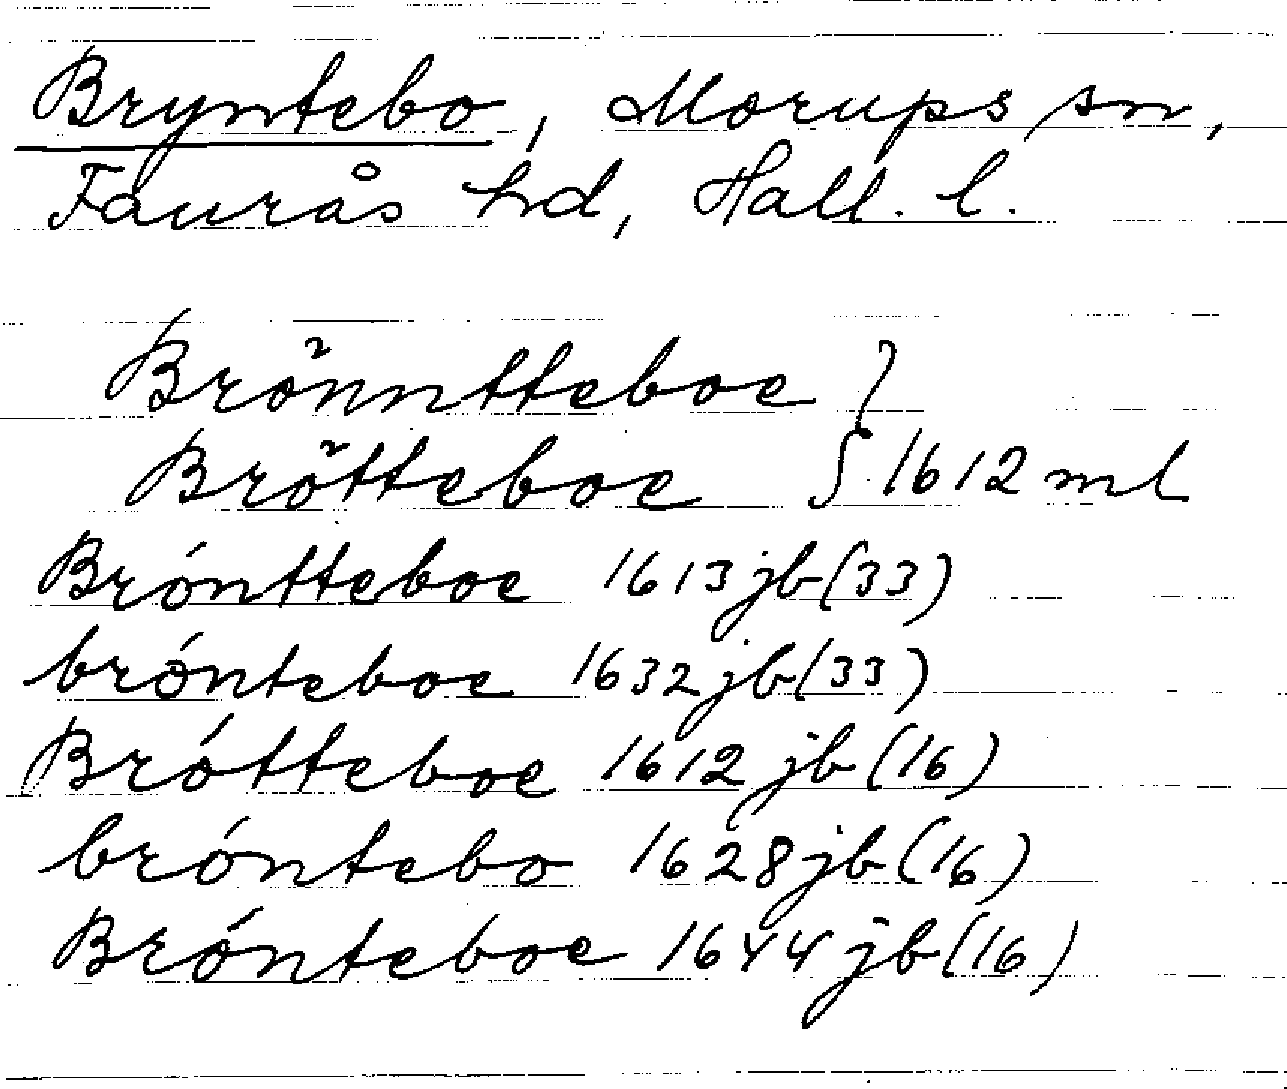 Bryntebo, Morups sn,
Faurås hd, Hall. l.
Brőnntteboe }
Brőtteboe } 1612 ml
Bróntteboe 1613 jb (33)
brónteboe 1632 jb (33)
Brótteboe 1612 jb (16)
bróntebo 1628 jb (16)
Brónteboe 1644 jb (16)